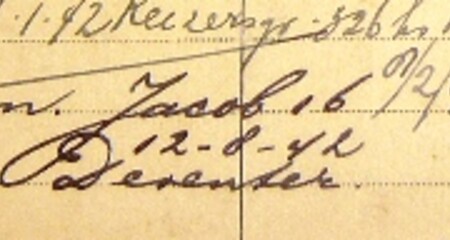 .1.42 Keizersgr. 326 hs
n. Jacob 16
12-8-42
Deventer.